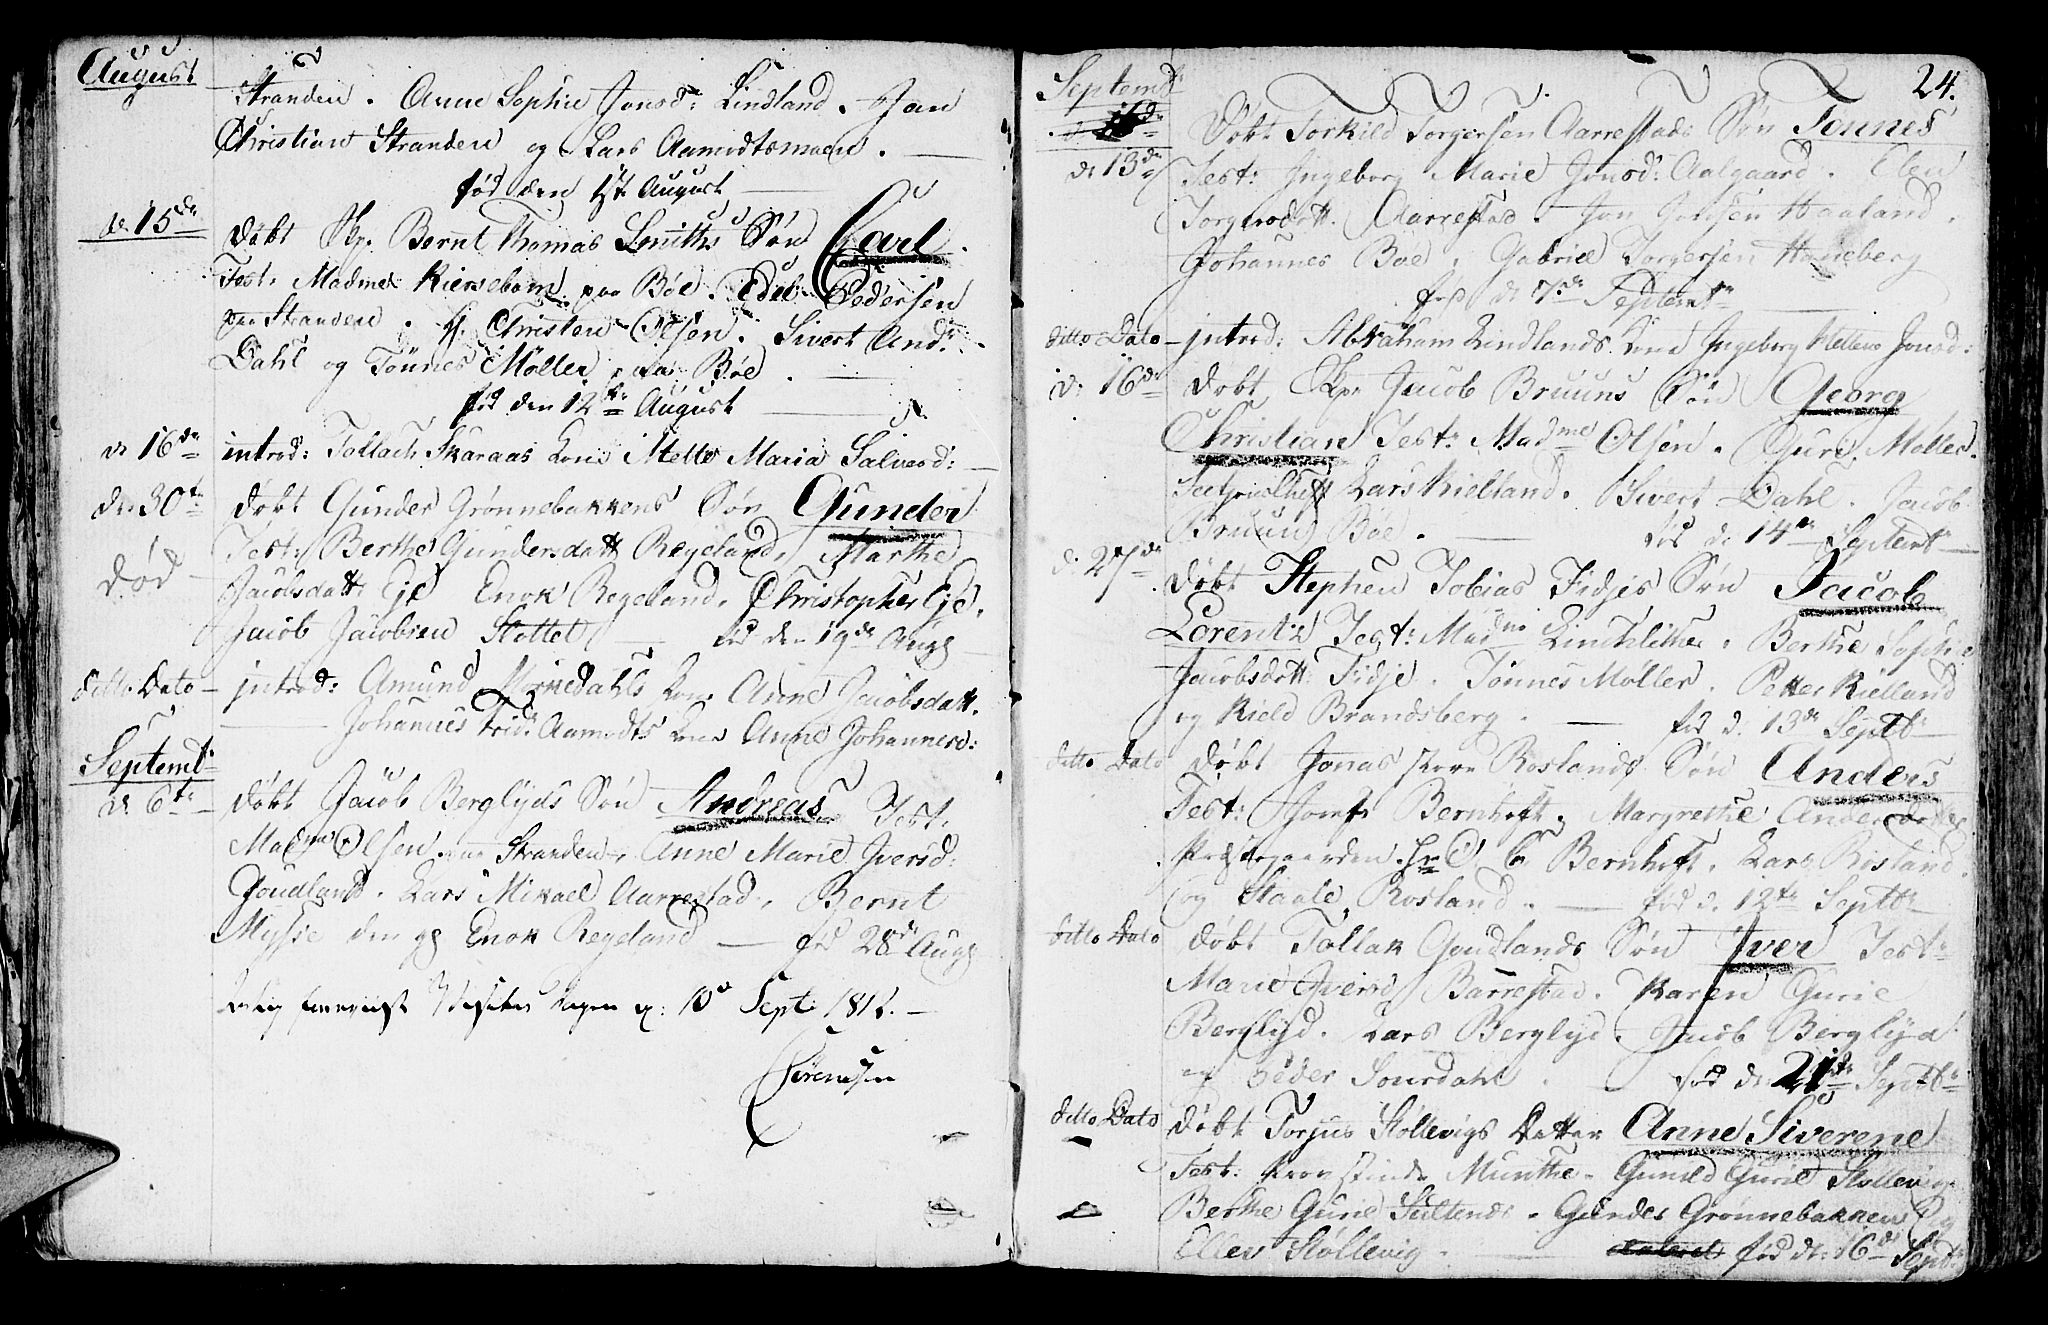 August
Stranden. Anne Sophie Jonsd: Lindland. Jan
Christian Stranden og Lars Aamodtsmoen.
fød den 1ste August
d. 15de døbt Skp. Bernt Thomas Smiths Søn Carl.
Test: Madme Kiersebom paa Bøe. Edel Pedersen
paa Stranden. H. Christen Olsen. Sivert And:
Dahl og Tønnes Møller paa Bøe.
fød den 12te August
d. 16de introd: Tollach Skaraas Kone Mette Maria Salvesd:
d. 30te døbt Gunder Grønnebakkens Søn Gunder
Test: Berthe Gundersdatt Regeland, Marthe
død Jacobsdatt: Eje Enok Regeland. Christopher Eje.
Jacob Jacobsen Stottet fød den 19de Aug
ditto Dato introd: Amund Mydedahls Kone Anne Jacobsdatt.
Johannes Aamodts Kone Anne Johannesd:
Septembr
d. 6te døbt Jacob Berglyds Søn Andreas Test:
Madme Olsen paa Stranden, Anne Marie Iversd:
Goudland. Lars Mikael Aarrestad, Bernt
Mysse den og Enok Regeland fød 28de Aug
10de Sept 1812.
Sørensen
Septembr 24.
d. 13de Døbt Torkild Torgersen Aarrestads Søn Tønnes
Test: Ingeborg Marie Jonsd: Aalgaard. Elen
Torgersdatt. Aarrestad. Jon Jonsen Haaland.
Johannes Bøe. Gabriel Torgersen Haneberg
fød d. 7de Septembr
ditto Dato introd: Abraham Lindlands Kone Ingeborg Hellene Jonsd:
d. 16de Døbt Skp. Jacob Bruuns Søn Georg
Christian Test: Madme Olsen. Guri Møller.
Lars Kielland. Sivert Dahl. Jacob
Bruun Bøe. fød d. 14de Septembr
d. 27de døbt Stephen Tobias Fidjes Søn Jacob
Lorentz Test: Madme Lindkilde. Berthe Sophie
Jacobsdatt: Fidje. Tønnes Møller. Petter Kielland
og Kield Brandsberg. fød d. 13de Septbr
ditto Dato Døbt Jonas store Roslands Søn Anders
Test: Jomfr Bernhoft, Margrethe Andersdatter
Præstegaarden. Hr C. C. Bernhoft. Lars Rosland.
og Staale Rosland. fød d. 12te Septbr
ditto Dato døbt Tollak Goudlands Søn Iver Test:
Marie Iversd Barrestad. Karen Gurie
Berglyd. Lars Berglyd. Jacob Berglyd
og Peder Sourdahl. fød d. 21de Septbr
ditto Dato Døbt Torjus Støllevigs Datter Anne Siverene
Test: Munthe. Guneld Gurie Støllevig.
Berthe Gurie. Gunder Grønnebakken og
Ellev Støllevig. fød d. 16de Septbr